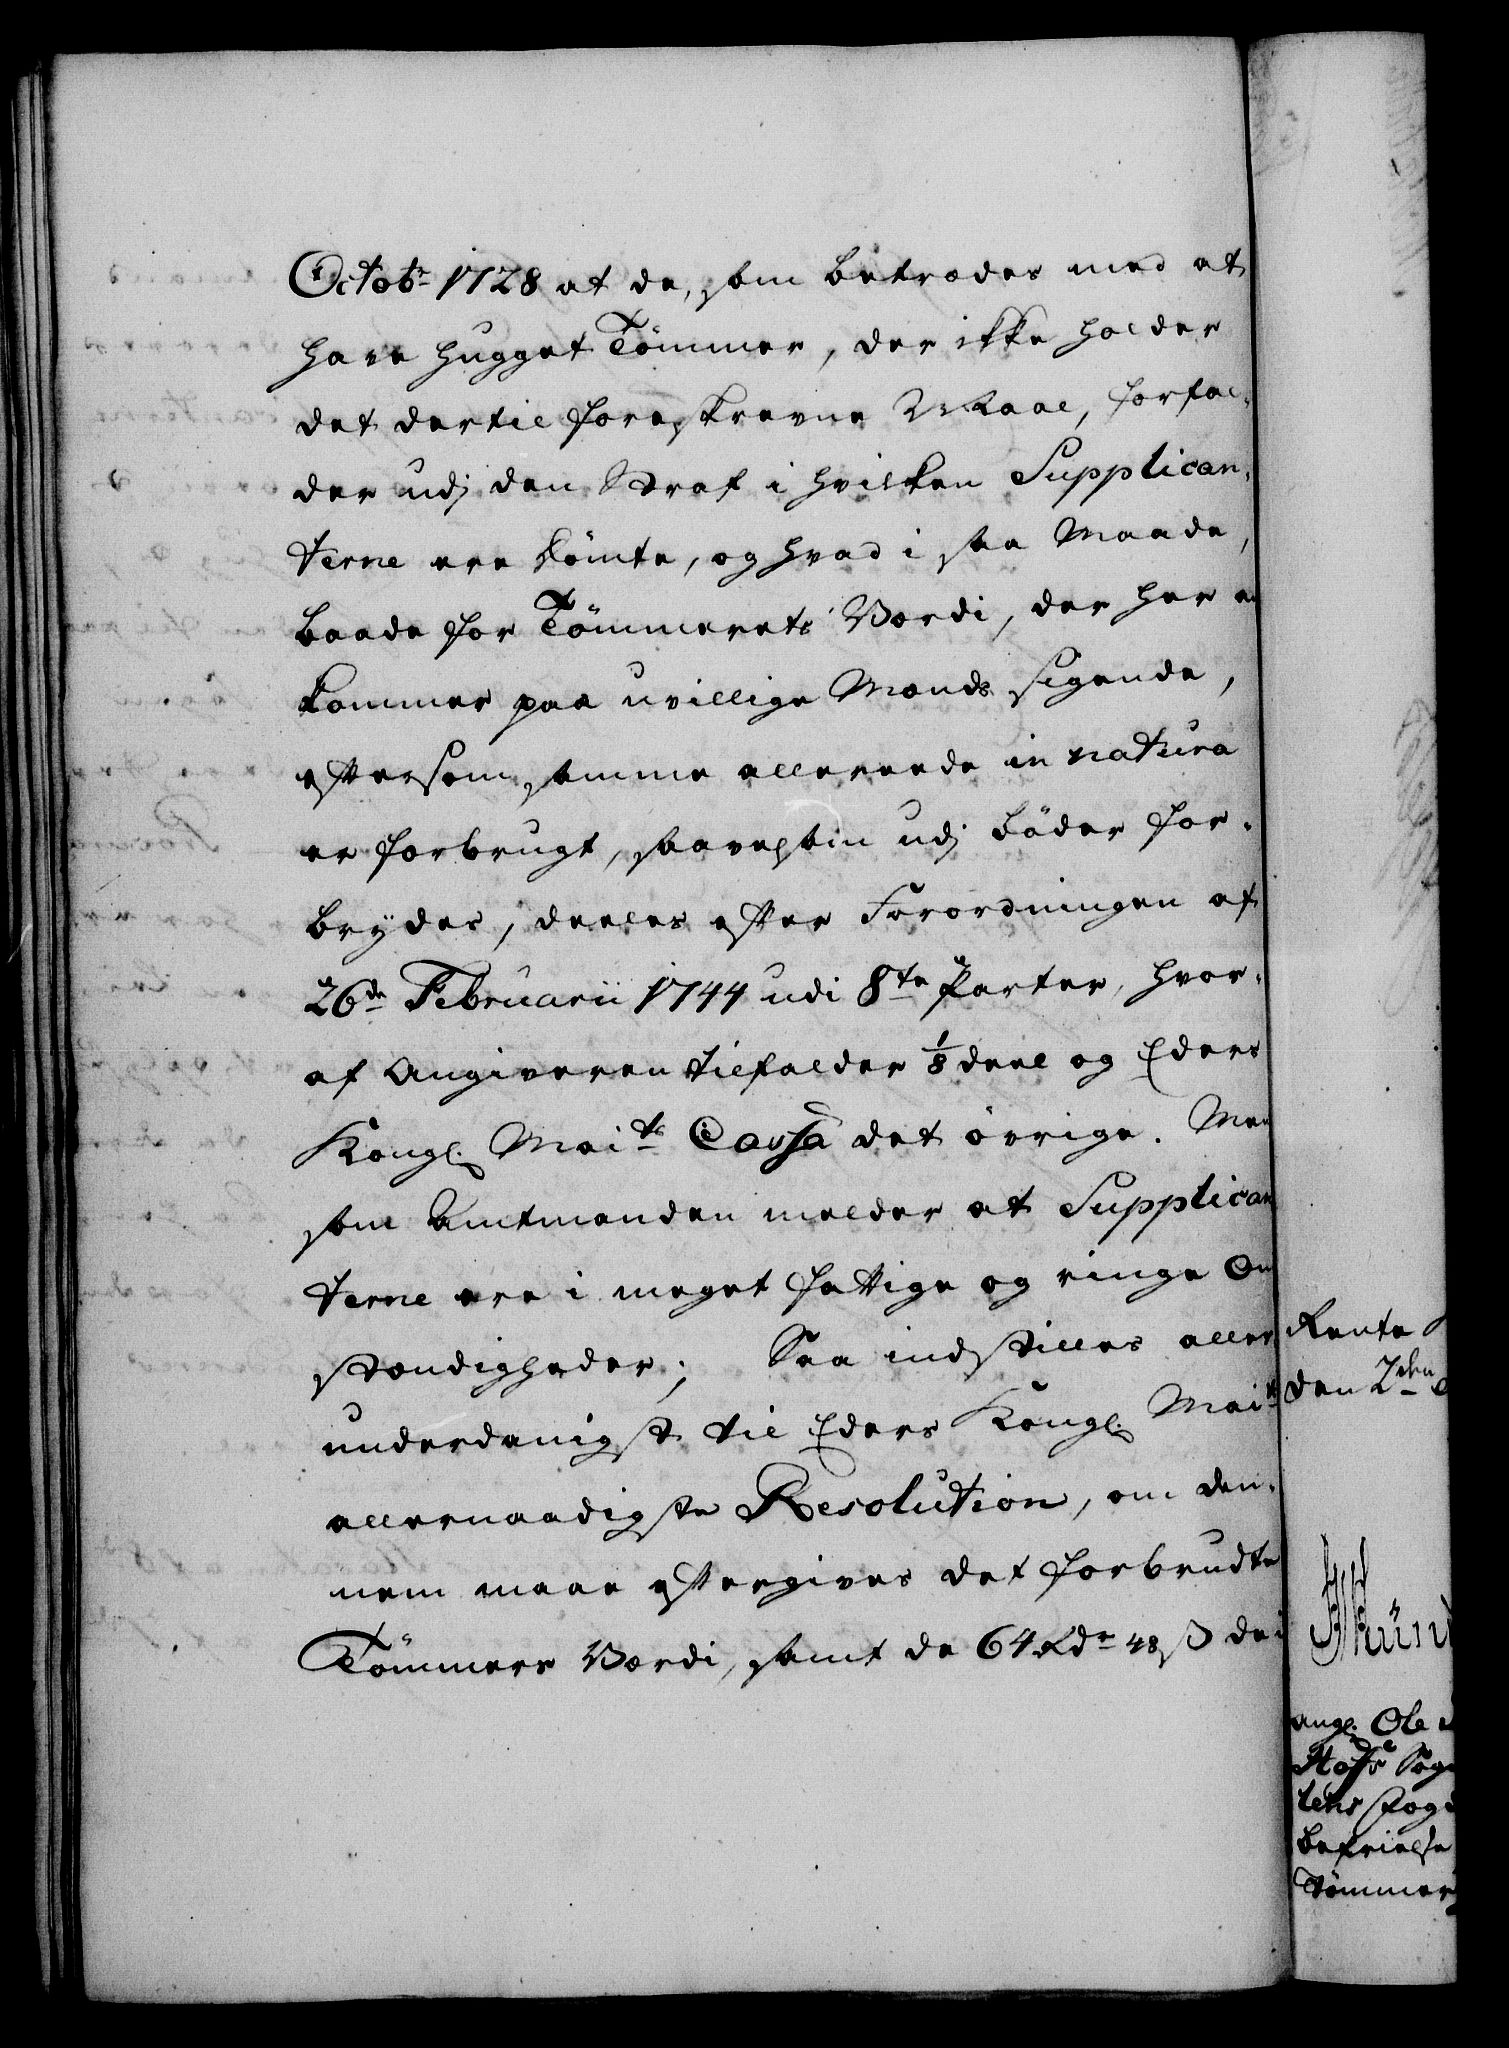 Octobr 1728 at de, som betrædes med at
have hugget Tömmer, der ikke holder
det dertil foreskrevne Maal, forfal-
der udj den Straf i hvilken Supplican-
terne ere dömte, og hvad i saa Maade,
baade for Tömmerets Værdi, der her an
kommer paa uvillige Mænds sigende,
eftersom samme allereede in natura
er forbrugt, saavelsom udj Böder for-
brydes, deeles efter Forordningen af
26de Februarii 1744 udi 8te Parter, hvor-
af Angiveren tilfalder 1/8 deel og Eders
Kongl. Mai:ts Cassa det övrige. Men
som Amtmanden melder at Supplican
terne ere i meget fattige og ringe Om
stændigheder; Saa indstilles aller
underdanigst til Eders Kongl. Mai:ts
allernaadigste Resolution, om den-
nem maae eftergives det forbrudte
Tömmers Værdi, samt de 64 Rdr 48 ß de i
Rente
den 2den
angl. Ole
Sogn
lens Fogd
befrielse
Tömmer